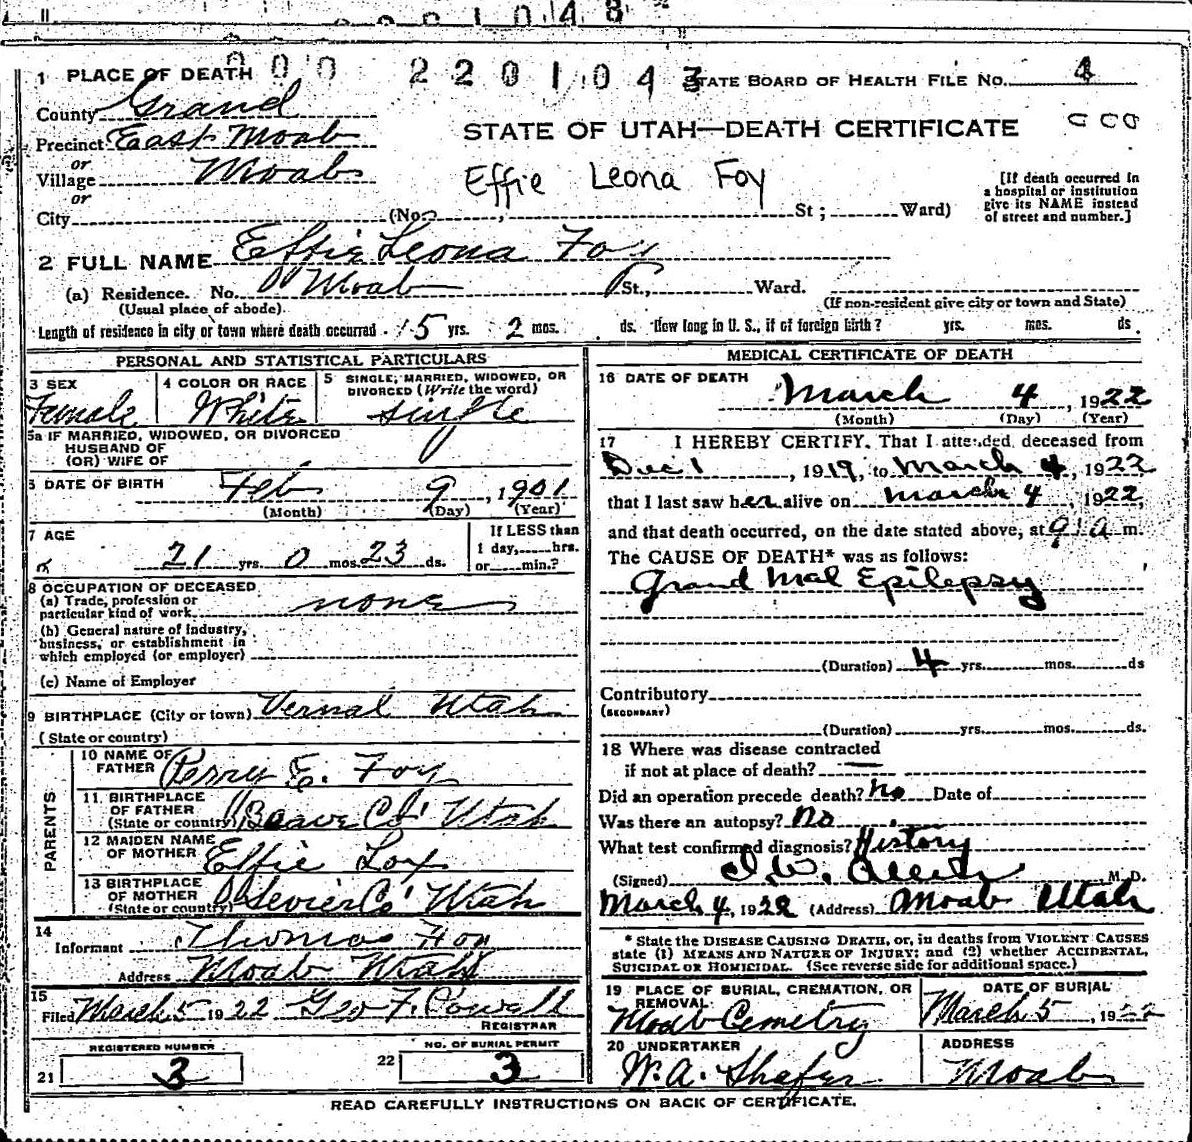 000 2201043
1 PLACE OF DEATH STATE BOARD OF HEALTH FILE NO. 4
County Grand
STATE OF UTAH—DEATH CERTIFICATE
Precinct East Moab
or
Village Moab
or
Effie Leona Foy
[If death occurred in a hospital or institution give its NAME instead of street and number.]
City (No. , St; Ward)
2 FULL NAME Effie Leona Foy
(a) Residence. No. Moab St., Ward.
(Usual place of abode) (If non-resident give city or town and State)
Length of residence in city or town where death occurred 15 yrs. 2 mos. ds. How long in U. S., if of foreign birth? yrs. mos. ds.
PERSONAL AND STATISTICAL PARTICULARS
3 SEX
Female
4 COLOR OR RACE
White
5 SINGLE, MARRIED, WIDOWED, OR
DIVORCED (Write the word)
Single
5a IF MARRIED, WIDOWED, OR DIVORCED
HUSBAND OF
(OR) WIFE OF
6 DATE OF BIRTH Feb 9, 1901
(Month) (Day) (Year)
7 AGE
21 yrs. 0 mos. 23 ds.
If LESS than
1 day,.....hrs.
or.....min.?
8 OCCUPATION OF DECEASED
(a) Trade, profession or
particular kind of work none
(b) General nature of industry,
business, or establishment in
which employed (or employer)
(c) Name of Employer
9 BIRTHPLACE (City or town) Vernal Utah
(State or country)
PARENTS
10 NAME OF
FATHER Perry E. Foy
11 BIRTHPLACE
OF FATHER
(State or country) Beaver Co Utah
12 MAIDEN NAME
OF MOTHER Effie Loy
13 BIRTHPLACE
OF MOTHER
(State or country) Sevier Co Utah
14
Informant Thomas Foy
Address Moab Utah
15
Filed March 5 1922 Geo F. Powell
REGISTRAR
REGISTERED NUMBER
21 3
NO. OF BURIAL PERMIT
22 3
MEDICAL CERTIFICATE OF DEATH
16 DATE OF DEATH March 4, 1922
(Month) (Day) (Year)
17 I HEREBY CERTIFY, That I attended deceased from
Dec 1, 1919, to March 4, 1922
that I last saw her alive on March 4, 1922,
and that death occurred, on the date stated above, at 9 a m.
The CAUSE OF DEATH* was as follows:
Grand Mal Epilepsy
(Duration) 4 yrs. mos. ds
Contributory
(SECONDARY)
(Duration) yrs. mos. ds.
18 Where was disease contracted
if not at place of death? —
Did an operation precede death? No Date of
Was there an autopsy? No
What test confirmed diagnosis? History
(Signed) I. W. Allen, M. D.
March 4, 1922 (Address) Moab Utah
* State the DISEASE CAUSING DEATH, or, in deaths from VIOLENT CAUSES
state (1) MEANS AND NATURE OF INJURY; and (2) whether ACCIDENTAL,
SUICIDAL OR HOMICIDAL. (See reverse side for additional space.)
19 PLACE OF BURIAL, CREMATION, OR
REMOVAL
Moab Cemetry
DATE OF BURIAL
March 5, 1922
20 UNDERTAKER
W. A. Shafer
ADDRESS
Moab
READ CAREFULLY INSTRUCTIONS ON BACK OF CERTIFICATE.